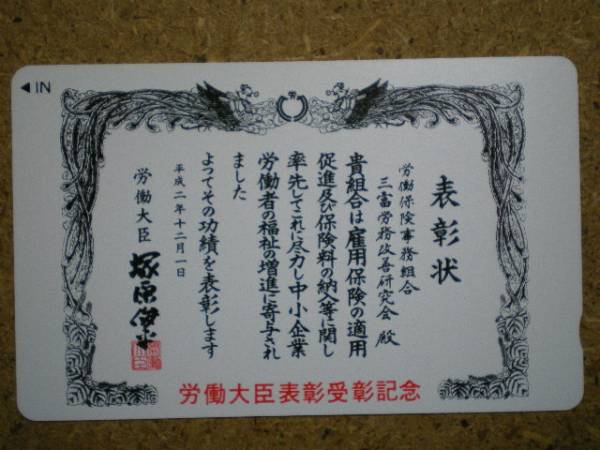 ◀IN
表彰状
労働保険事務組合
三富労務改善研究会 殿
貴組合は雇用保険の適用
促進及び保険料の納入等に関し
率先してこれに尽力し中小企業
労働者の福祉の増進に寄与され
ました
よってその功績を表彰します
平成二年十二月一日
労働大臣 塚原俊平
労働大臣表彰受彰記念